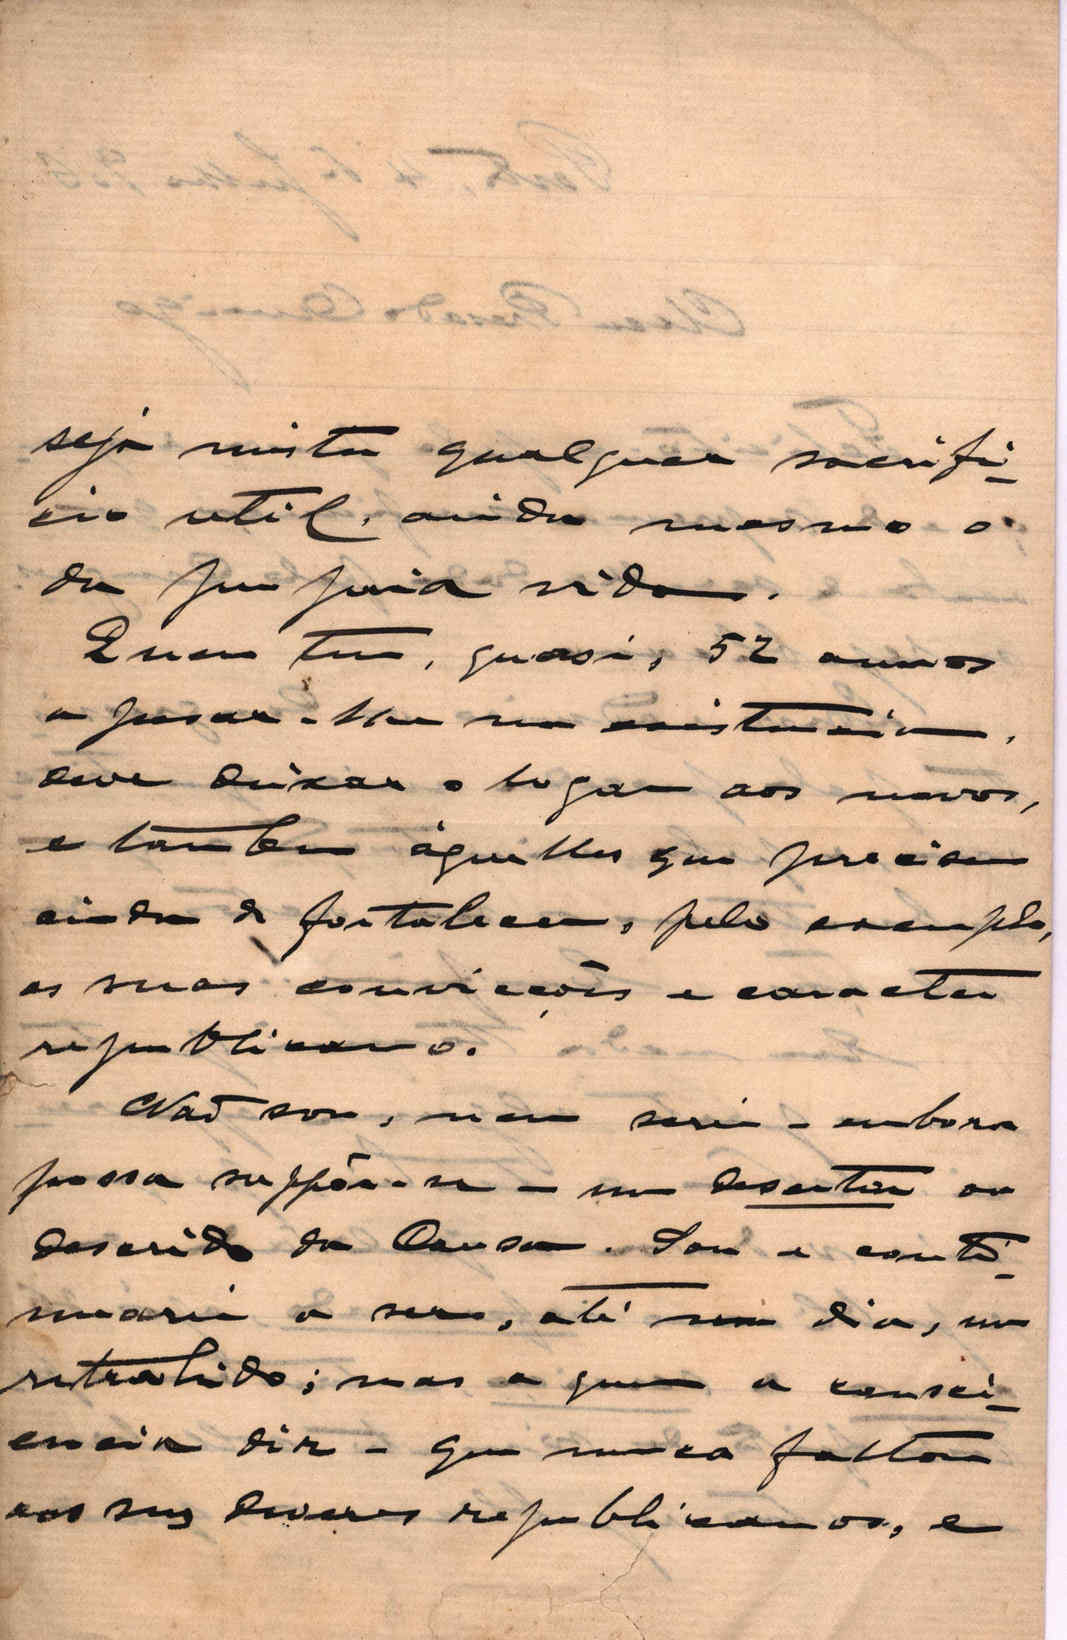 seja mister qualquer sacrifi-
cio util, ainda mesmo o
da propria vida.
Quem tem, quasi, 52 annos
a pesar-lhe na existencia,
deve deixar o logar aos novos,
e tambem áquelles que precisem
ainda de fortalecer, pelo exemplo,
as suas convicções e caracter
republicano.
Não sou, nem serei - embora
possa suppôr-se - um desertor ou
descrido da Causa. Sou e conti-
nuarei a ser, até um dia, um
retrahido; mas a quem a consci-
encia diz - que nunca faltou
aos seus deveres republicanos, e